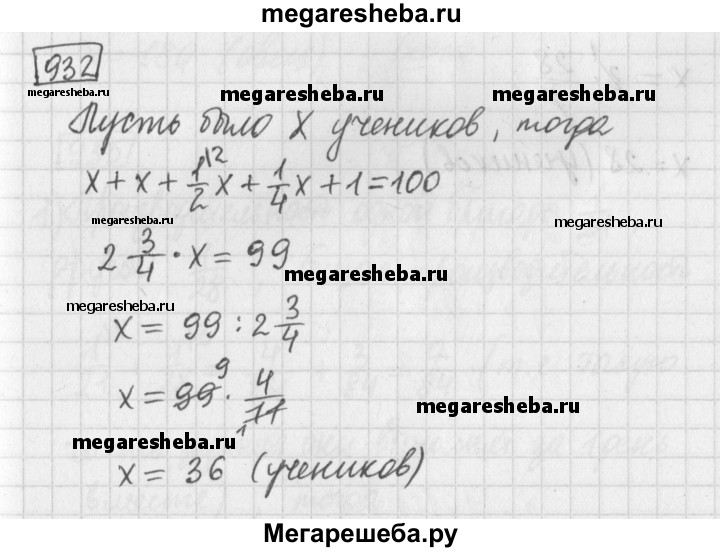 megaresheba.ru
932
megaresheba.ru megaresheba.ru megaresheba.ru
Пусть было X учеников, тогда
x + x + 1/2 x + 1/4 x + 1 = 100
megaresheba.ru megaresheba.ru
2 3/4 · x = 99
megaresheba.ru
megaresheba.ru
x = 99 : 2 3/4
x = 99 9 · 4/11 1
megaresheba.ru
megaresheba.ru
x = 36 (учеников)
Мегарешеба.ру